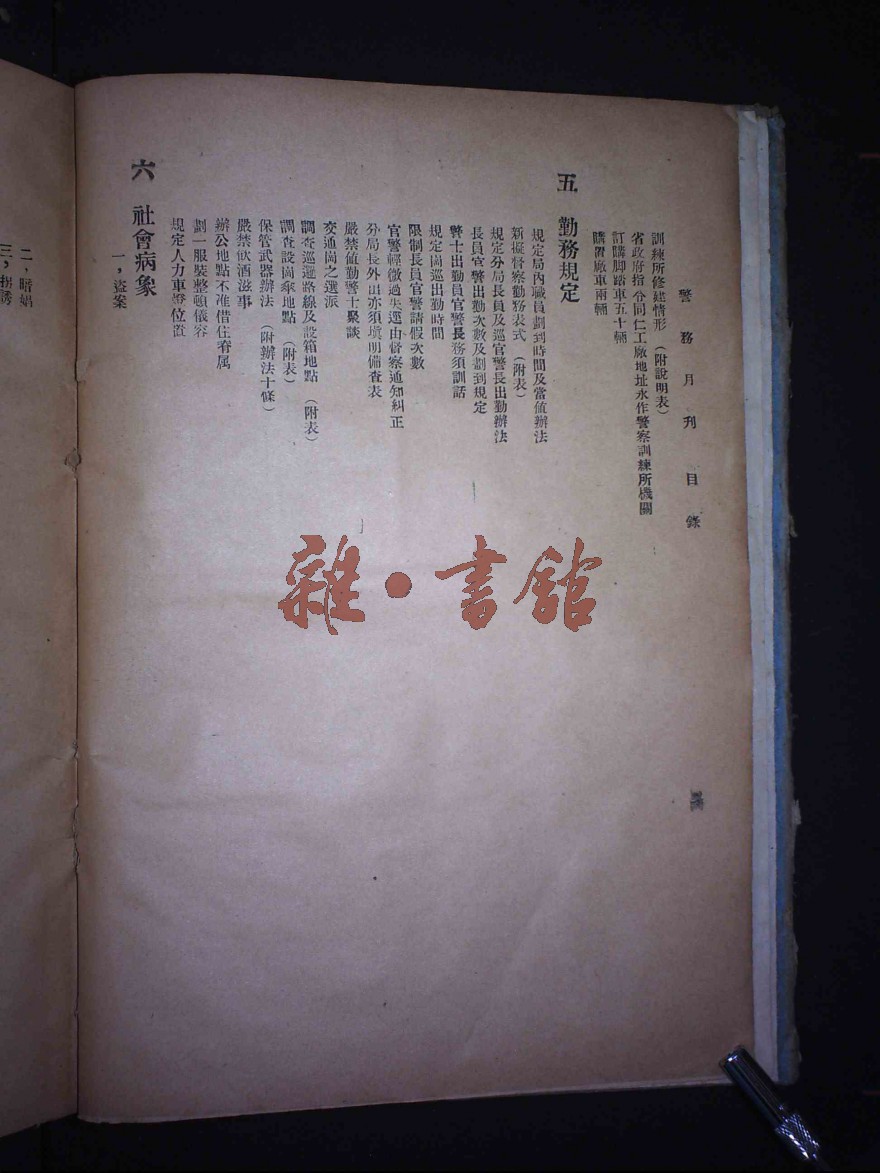 警務月刊 目錄
訓練所修建情形（附說明表）
省政府指令同仁工廠地址永作警察訓練所機關
訂購脚踏車五十輛
購置廠車兩輛
五 勤務規定
規定局內職員劃到時間及當值辦法
新擬督察勤務表式（附表）
規定分局長員及巡官警長出勤辦法
長員官警出勤次數及劃到規定
警士出勤員官警長務須訓話
規定崗巡出勤時間
限制長員官警請假次數
官警輕微過失逕由督察通知糾正
分局長外出亦須塡明備查表
嚴禁値勤警士聚談
交通崗之選派
調查巡邏路線及設箱地點（附表）
調查設崗傘地點（附表）
保管武器辦法（附辦法十條）
嚴禁飲酒滋事
辦公地點不准借住眷属
劃一服裝整頓儀容
規定人力車燈位置
六 社會病象
一，盜案
二，暗娼
三，拐誘
雜·書館